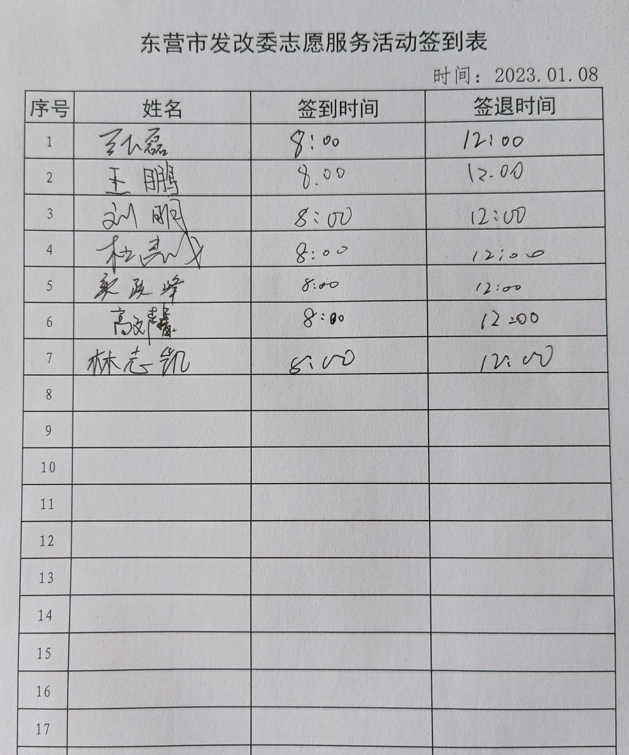 东营市发改委志愿服务活动签到表
时间：2023.01.08
序号 姓名 签到时间 签退时间
1 磊 8:00 12:00
2 王鹏 8.00 12.00
3 刘明 8:00 12:00
4 杜 8:00 12:00
5 政峰 8:00 12:00
6 高 8:00 12:00
7 林志凯 8:00 12:00
8
9
10
11
12
13
14
15
16
17